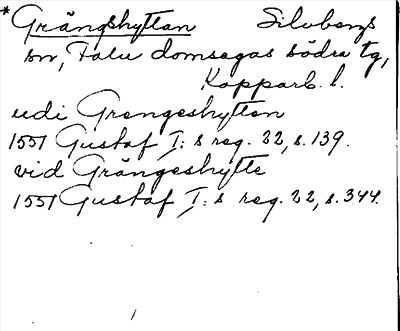 * Grängshyttan Silvbergs
sn, Falu domsagas södra tg,
Kopparb. l.
udi Grengeshytton
1551 Gustaf I:s reg. 22, s. 139.
vid Grängeshytte
1551 Gustaf I:s reg. 22, s. 344.